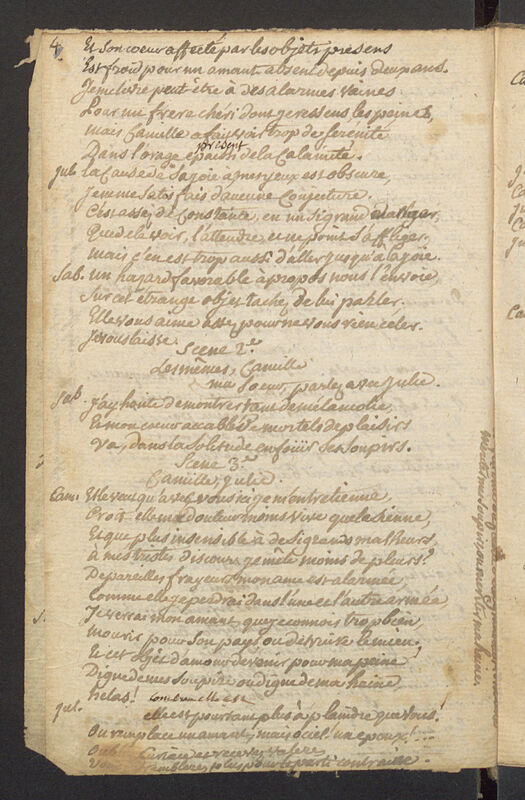 4.
Et son coeur affecté par les objets presens
Est froid pour un amant absent depuis deux ans.
Je me livre peut être à des alarmes vaines
Pour un frere chéri dont je ressens les peines,
mais Camille a fait voir trop de serénité
present
Dans l'orage épais de la Calamité.
Jul. La Cause de sa joie à mes yeux est obscure,
Je ne me satisfais d'aucune Conjecture.
C'est assez de Constance, en un si grand danger,
Que de le voir, l'attendre, et ne point s'affliger,
mais c'en est trop aussi d'aller jusqu'à la joie.
Sab. un hazard favorable à propos nous l'envoie,
Sur cet étrange objet tachez de lui parler.
Elle vous aime assez pour ne vous rien celer.
Je vous laisse.
Scene 2.e
Les mêmes, Camille
ma Soeur, parlez avec Julie.
Sab. J'ay honte de montrer tant de mélancolie,
Et mon coeur accablé de mortels deplaisirs
va, dans la Solitude enfouir ses soupirs.
Scene 3.e
Camille, Julie.
Cam. Elle veut qu'avec vous ici je m'entretienne,
Croit-elle ma douleur moins vive que la sienne,
Et que plus insensible à de si grands malheurs,
à mes tristes discours je mêle moins de pleurs?
De pareilles frayeurs mon ame est alarmée
Comme elle je perdrai dans l'une et l'autre armée
Je verrai mon amant, que je connois trop bien
mourir pour son pays ou detruire le mien,
Et cet objet d'amour devenir pour ma peine
Digne de mes soupirs ou digne de ma haine,
helas!
Jul. elle est pourtant plus à plaindre que vous!
On remplace un amant, mais ô ciel! un epoux!...
Oubliez Curiace et recevez valere